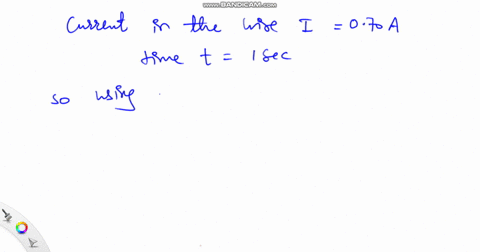 WWW.BANDICAM.COM
Current in the wire I = 0.70 A
time t = 1 sec
so using